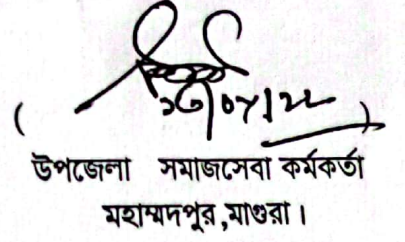 ( )
উপজেলা সমাজসেবা কর্মকর্তা
মহাম্মদপুর,মাগুরা।